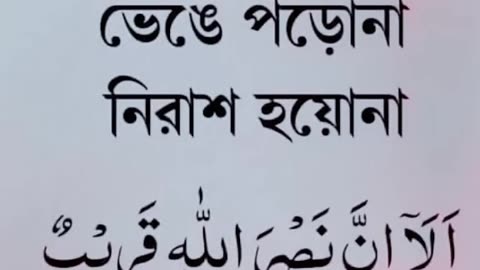 ভেঙে পড়োনা
নিরাশ হয়োনা
اَلَآ اِنَّ نَصْرَ اللّٰهِ قَرِيْبٌ